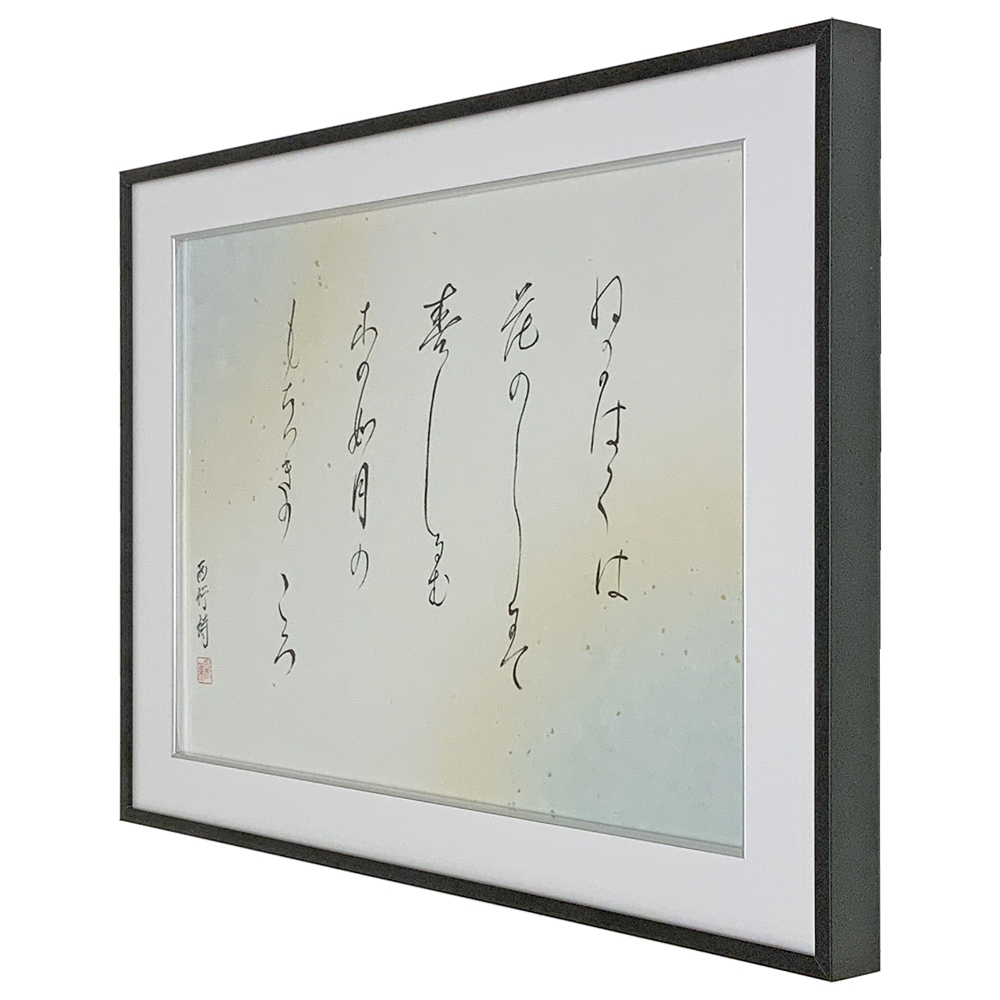 ねかはくは
花のしたにて
春しなむ
その如月の
もちつきのころ
西行詩